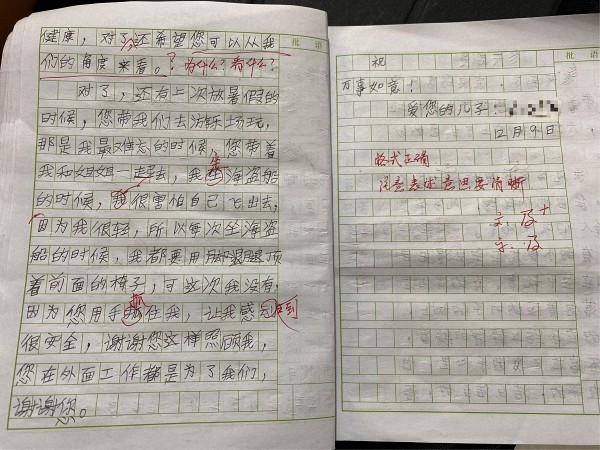 批 语
健康，对了还希望您可以从我
们的角度来看。？为什么？看什么？
对了，还有上次放暑假的
时候，您带我们去游乐场玩，
那是我最难忘的时候，您带着
我和姐姐一起去，我坐海盗船
的时候，我很害怕自己飞出去，
因为我很轻，所以每次坐海盗
船的时候，我都要用脚跟腿顶
着前面的椅子，可这次我没有，
因为您用手抓住我，让我感觉到
很安全，谢谢您这样照顾我，
您在外面工作都是为了我们，
谢谢您。
批 语
祝
万事如意！
爱您的儿子：
12月9日
格式正确
注意表述意思要清晰
文：及+
字：及